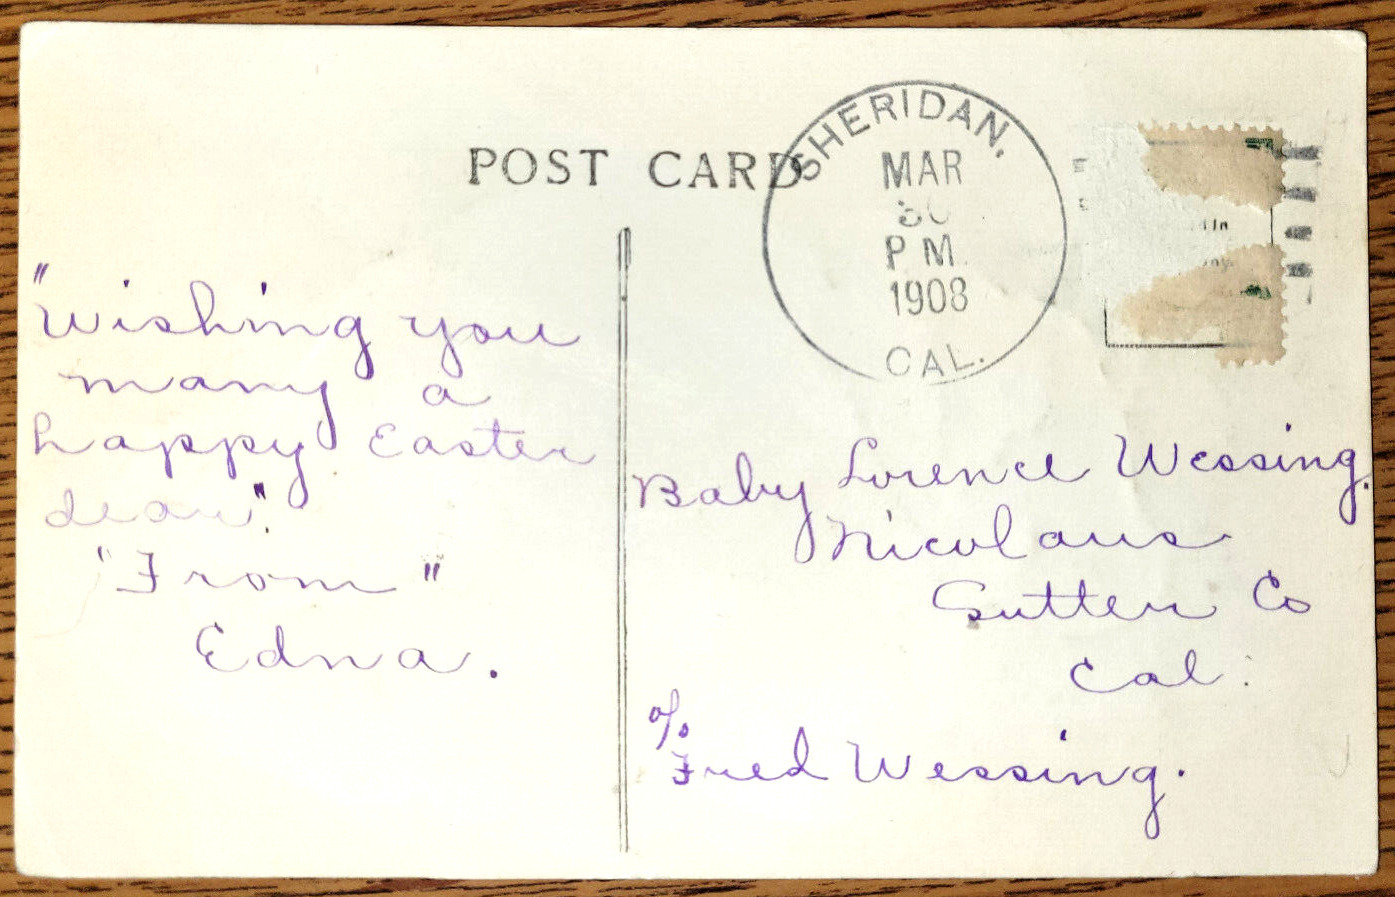 POST CARD
SHERIDAN.
MAR
30
P M.
1908
CAL.
"Wishing you
many a
happy Easter
dear".
"From"
Edna.
Baby Lorence Wessing.
Nicolaus
Sutter Co
Cal.
c/o
Fred Wessing.